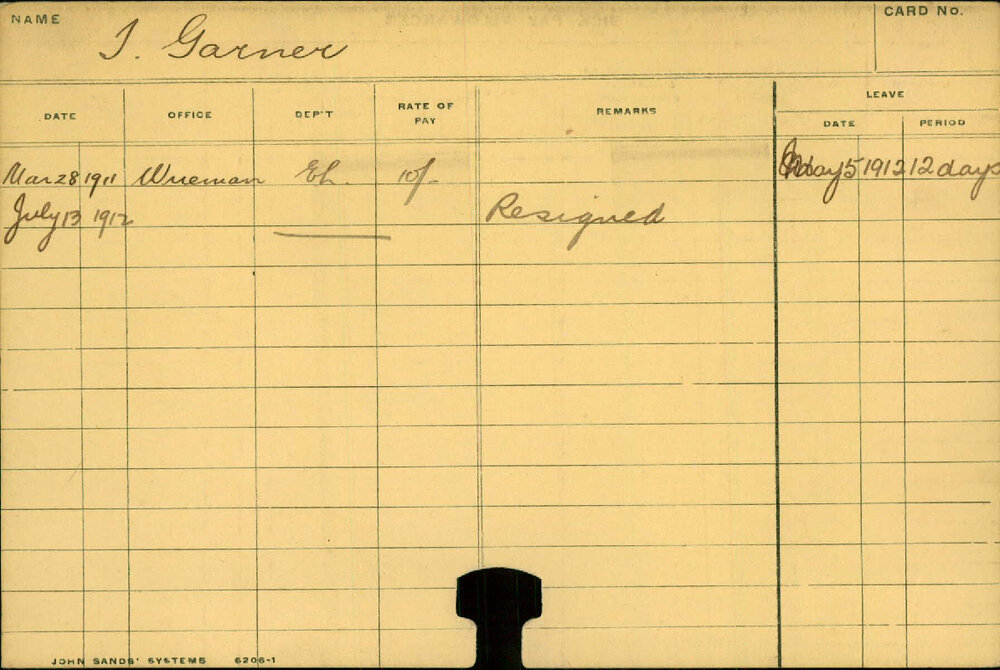 NAME
CARD No.
J. Garner
LEAVE
DATE OFFICE DEP'T RATE OF PAY REMARKS
DATE PERIOD
Mar 28 1911 Wireman EL. 10/- May 5 1912 12 days
July 13 1912 Resigned
JOHN SANDS' SYSTEMS 6206-1